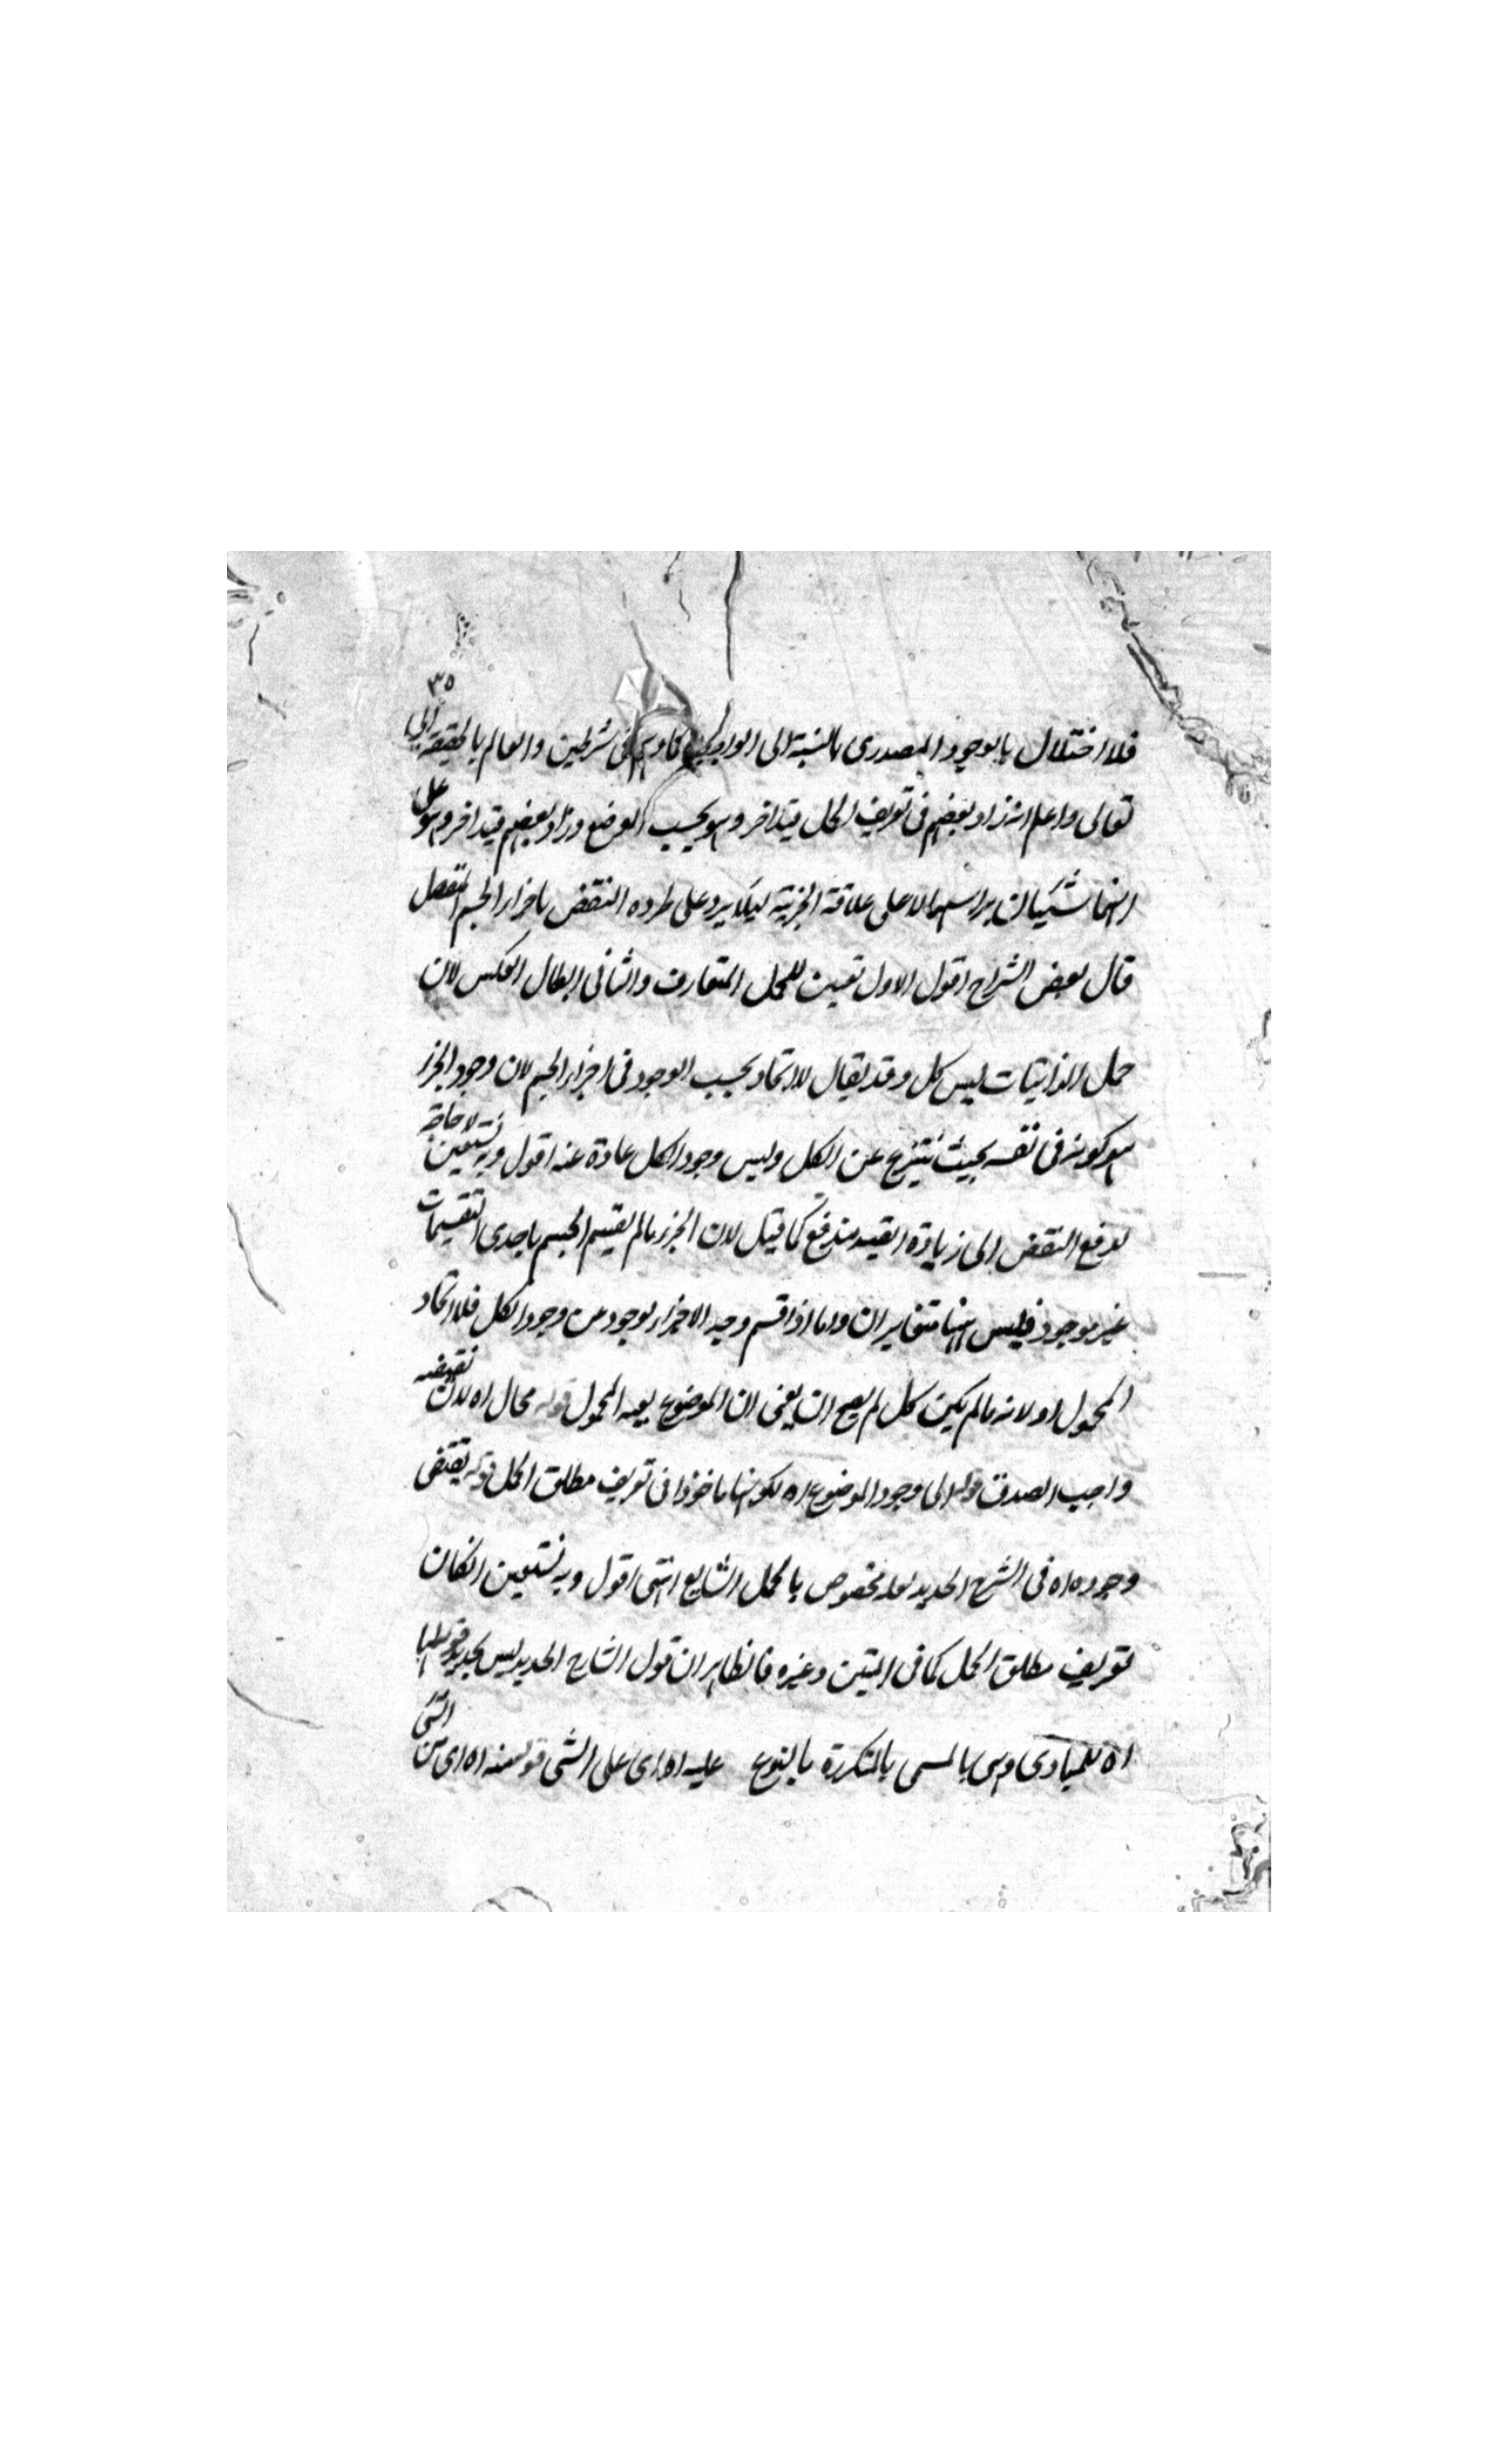 ٣٥
فلا اختلال بالوجود المصدرى بالنسبة الى شرطين والعالم بالحقيقة الى
تعالى واعلم انه زاد بعضهم فى تعريف الحمل قيدا اخر وهو بحسب الوضع وزاد بعضهم قيدا اخر وهو على
انهما شيئان براسهما لا على علاقة الجزئية ليلا يرد على طرده النقض باجزاء الجسم المتصل
قال بعض الشراح اقول الاول تعيين للحمل المتعارف والثانى ابطال العكس لان
حمل الذاتيات ليس كل وقد يقال لا اتحاد بحسب الوجود فى اجزاء الجسم لان وجود الجزء
هو كونه فى نفسه بحيث ينتزع عن الكل وليس وجود الكل عادة عنه اقول وبه نستعين لا حاجة
لدفع النقض الى زيادة القيد مندفع كما قيل لان الجزء مالم يقسم الجسم باحدى التقسيمات
غير موجود فليس ههنا متغايران واما اذا قسم وجد الاجزاء بوجود من وجود الكل فلا اتحاد
المحمول اه لانه مالم يكن كل لم يصح ان يعنى ان الموضوع يعه المحمول قوله محال اه لان نقيضه
واجب الصدق قوله الى وجود الموضوع اه لكونها ماخوذا فى تعريف مطلق الحمل قوله يقتضى
وجوده اه فى الشرح الجديد لعله مخصوص بالحمل الشايع انتهى اقول وبه نستعين ان كان
تعريف مطلق الحمل كما فى المتن وغيره فالظاهر ان قول الشارح الجديد ليس بجديد قوله
اه للمبادى وهى بالمسمى بالمتكررة بالنوع عليه اه اى على الشى قوله منه اه اى من الشى